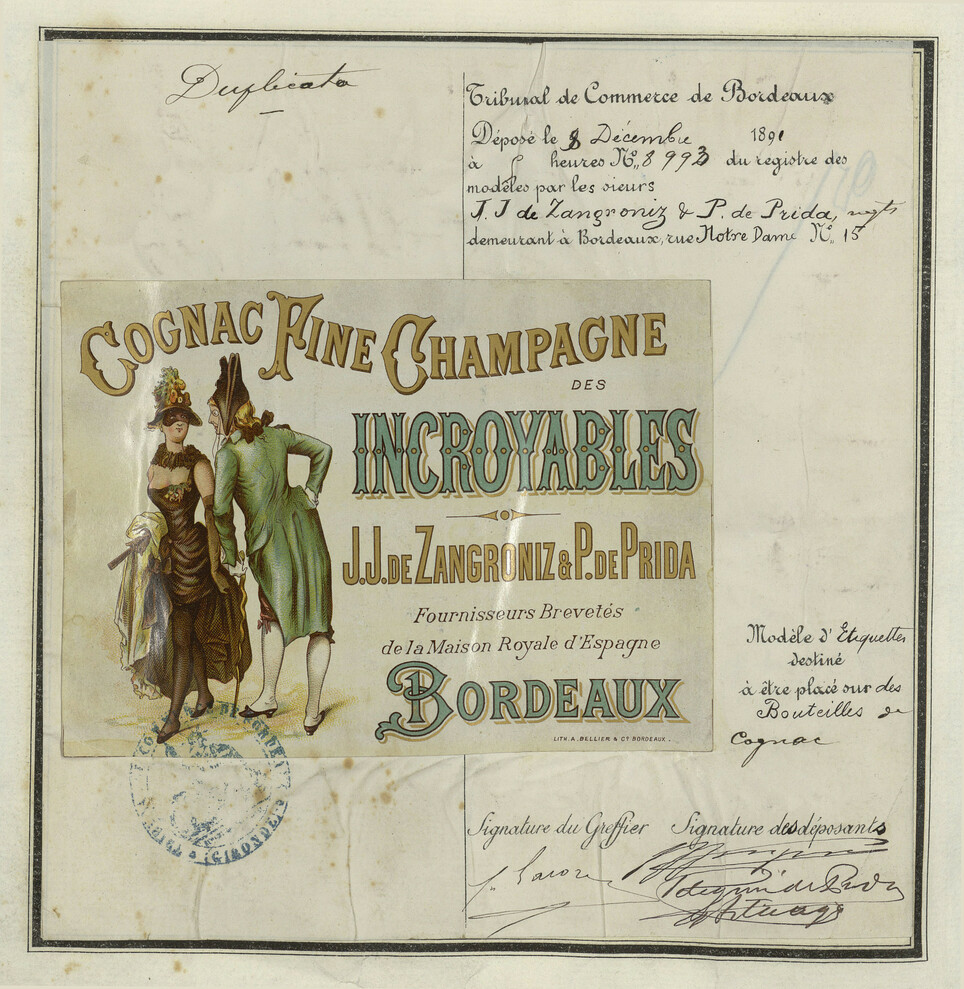 Duplicata
Tribunal de Commerce de Bordeaux
Déposé le 8 Décembre 1891
à heures Nº 8993 du registre des
modèles par les sieurs
J. J de Zangroniz & P. de Prida, negts
demeurant à Bordeaux, rue Notre Dame Nº 15
COGNAC FINE CHAMPAGNE
DES
INCROYABLES
J.J. DE ZANGRONIZ & P. DE PRIDA
Fournisseurs Brevetés
de la Maison Royale d'Espagne
BORDEAUX
LITH. A. BELLIER & Cº BORDEAUX.
Modèle d'Etiquettes
destiné
à être placé sur des
Bouteilles de
Cognac
DE BORDEAUX
(GIRONDE)
Signature du Greffier Signature des déposants